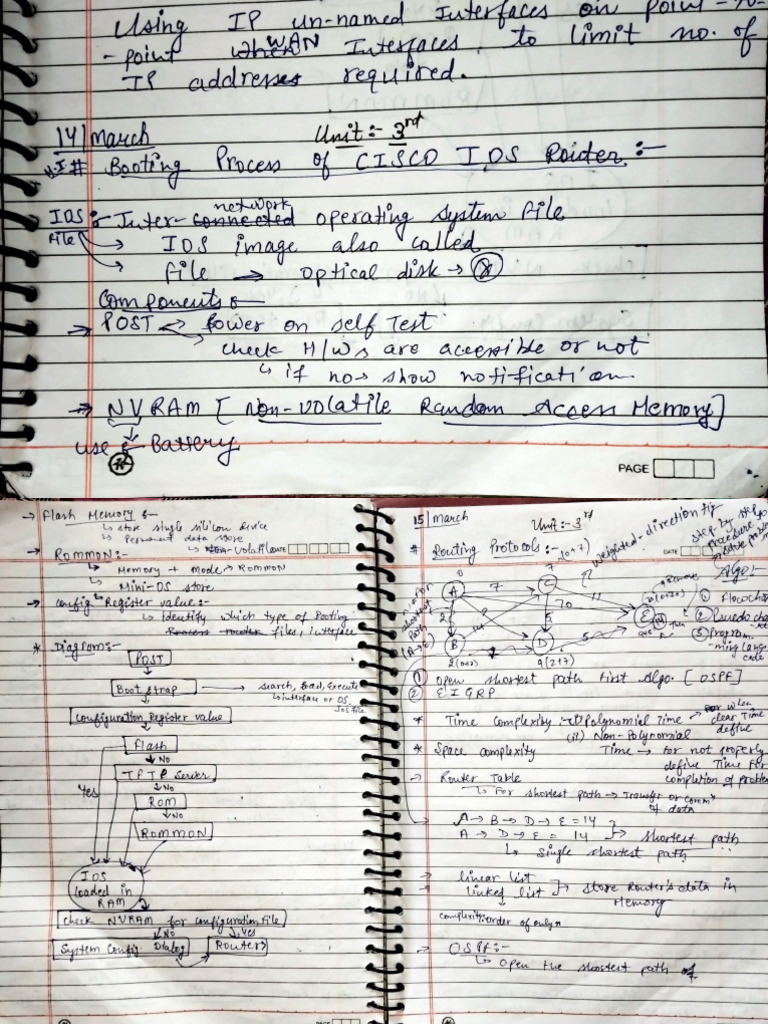 Using IP un-named Interfaces on point-to-
- point WAN Interfaces, to limit no. of
IP addresses required.
14/March Unit:- 3rd
# Booting Process of CISCO IOS Router:-
IOS :- Inter-network operating system file
file → IOS image also called
→ file → optical disk →
Components:-
→ POST → Power on self Test
check H/Ws are accessible or not
↳ if no → show notification
→ NVRAM [Non-volatile Random Access Memory]
use :- Battery
PAGE
→ Flash Memory :-
↳ store single silicon device
↳ Permanent data store
↳ Non-volatile
DATE
→ ROMMON:-
↳ Memory + mode → ROMMON
↳ Mini-OS store
→ Config Register value:-
↳ Identify which type of Booting
files, interface
* Diagram:-
POST
Boot strap → search, load, Execute
↳ interface or OS,
IOS file
Configuration Register value
Flash
↓ No
TFTP Server
Yes
↓ No
ROM
↓ No
ROMMON
IOS
loaded in
RAM
check NVRAM for configuration file
↓ No ↓ Yes
System Config. Dialog → Routers
PAGE
15/March Unit:- 3rd
# Routing Protocols:-
DATE
Weighted-direction
step by step
procedure
solve problem
Algo:-
① Flowchart
② 
③ Program-
ming Lang.
code
0
7 (0+7)
A 7 C
2 11
20
14 5 E
B 2 D 5
2(0+2) 9(2+7)
① Open shortest path first Algo. [OSPF]
② EIGRP
* Time complexity → (i) Polynomial Time → for when
clear Time
define
(ii) Non-Polynomial
Time → for not properly
define Time for
completion of problem
* Space complexity
→ Router Table
↳ For shortest path → Transfer or commn
of data
→ A → B → D → E = 14
A → D → E = 14 } → shortest path
↳ Single shortest path
→ linear list
→ linked list } → store Router's data in
Memory
complexity: order of only n
→ OSPF:-
↳ Open the shortest path of